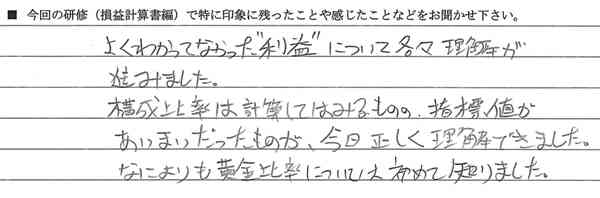 ■ 今回の研修（損益計算書編）で特に印象に残ったことや感じたことなどをお聞かせ下さい。
よくわかってなかった"利益"について各々理解が
進みました。
構成比率は計算してはみるものの、指標値が
あいまいだったものが、今日正しく理解できました。
なによりも黄金比率については初めて知りました。